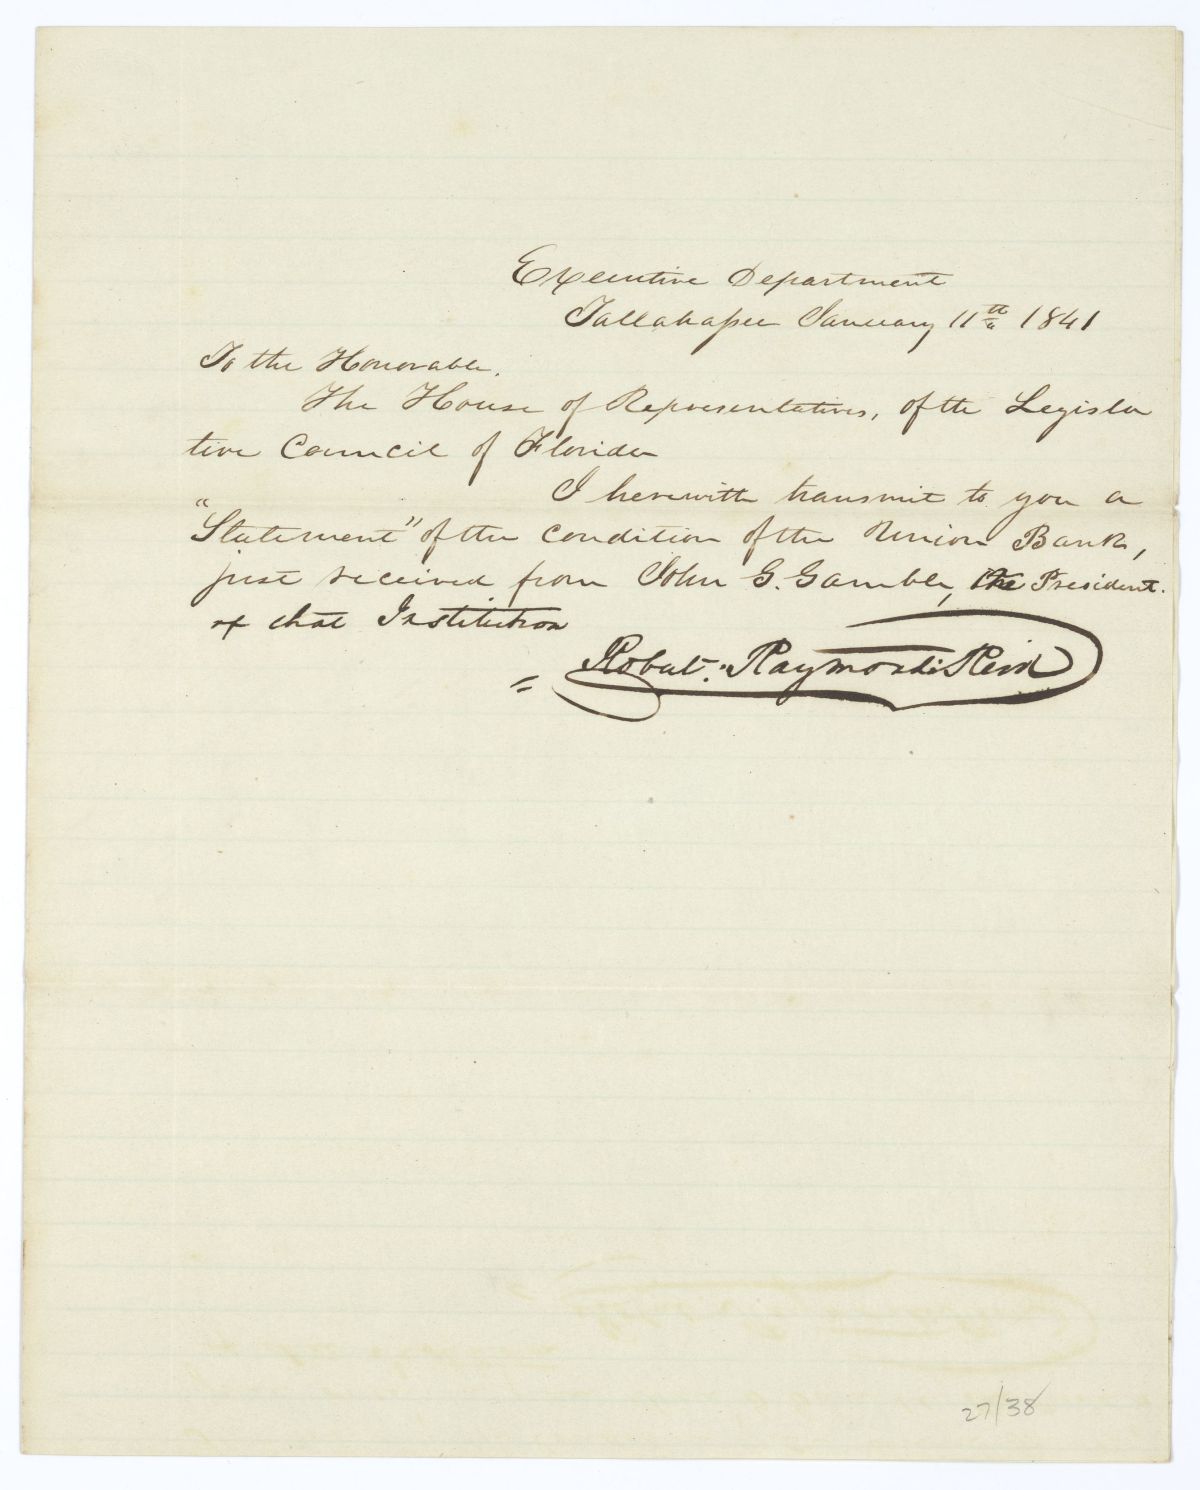 Executive Department
Tallahassee January 11th 1841
To the Honorable.
The House of Representatives, of the Legisla
tive Council of Florida
I herewith transmit to you a
"Statement" of the condition of the Union Bank,
just received from John G. Gamble, the President.
of that Institution
Robert Raymond Reid
27/38